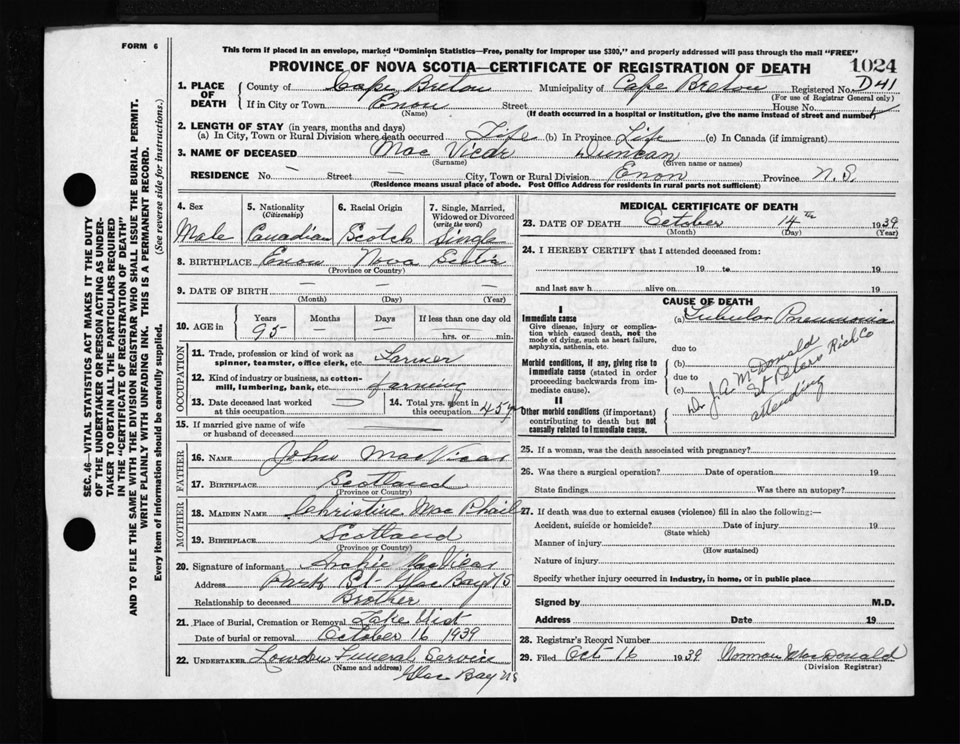 FORM 6
This form if placed in an envelope, marked "Dominion Statistics—Free, penalty for improper use $300," and properly addressed will pass through the mail "FREE"
PROVINCE OF NOVA SCOTIA—CERTIFICATE OF REGISTRATION OF DEATH
1024
1. PLACE OF DEATH
County of Cape Breton Municipality of Cape Breton Registered No. D41
(For use of Registrar General only)
If in City or Town Enon Street House No.
(Name) (If death occurred in a hospital or institution, give the name instead of street and number)
2. LENGTH OF STAY (in years, months and days)
(a) In City, Town or Rural Division where death occurred Life (b) In Province Life (c) In Canada (if immigrant)
3. NAME OF DECEASED Mac Vicar Duncan
(Surname) (Given name or names)
RESIDENCE No. — Street — City, Town or Rural Division Enon Province N.S.
(Residence means usual place of abode. Post Office Address for residents in rural parts not sufficient)
4. Sex
Male
5. Nationality
(Citizenship)
Canadian
6. Racial Origin
Scotch
7. Single, Married, Widowed or Divorced
(write the word)
Single
8. BIRTHPLACE Enon Nova Scotia
(Province or Country)
9. DATE OF BIRTH — — —
(Month) (Day) (Year)
10. AGE in
Years Months Days If less than one day
95 — — hrs. or min.
OCCUPATION
11. Trade, profession or kind of work as spinner, teamster, office clerk, etc. Farmer
12. Kind of industry or business, as cotton-mill, lumbering, bank, etc. farming
13. Date deceased last worked at this occupation
14. Total yrs. spent in this occupation 45
15. If married give name of wife or husband of deceased
FATHER
16. NAME John MacVicar
17. BIRTHPLACE Scotland
(Province or Country)
MOTHER
18. MAIDEN NAME Christine MacPhail
19. BIRTHPLACE Scotland
(Province or Country)
20. Signature of informant Archie MacVicar
Address Park St Glace Bay NS
Relationship to deceased Brother
21. Place of Burial, Cremation or Removal Lake Uist
Date of burial or removal October 16 1939
22. UNDERTAKER Lowden Funeral Service
(Name and address)
Glace Bay NS
MEDICAL CERTIFICATE OF DEATH
23. DATE OF DEATH October 14th 1939
(Month) (Day) (Year)
24. I HEREBY CERTIFY that I attended deceased from:
19 to 19
and last saw h alive on 19
CAUSE OF DEATH
I
Immediate cause
Give disease, injury or complication which caused death, not the mode of dying, such as heart failure, asphyxia, asthenia, etc.
(a) Lubular Pneumonia
due to
Morbid conditions, if any, giving rise to immediate cause (stated in order proceeding backwards from immediate cause).
(b)
due to
(c)
II
Other morbid conditions (if important) contributing to death but not causally related to immediate cause.
Dr J.A. McDonald
St Peters Rich Co
attending
25. If a woman, was the death associated with pregnancy?
26. Was there a surgical operation? Date of operation 19
State findings Was there an autopsy?
27. If death was due to external causes (violence) fill in also the following:—
Accident, suicide or homicide? Date of injury 19
(State which)
Manner of injury
(How sustained)
Nature of injury
Specify whether injury occurred in industry, in home, or in public place
Signed by M.D.
Address Date 19
28. Registrar's Record Number
29. Filed Oct 16 1939 Norman MacDonald
(Division Registrar)
SEC. 46—VITAL STATISTICS ACT MAKES IT THE DUTY
OF THE UNDERTAKER OR PERSON ACTING AS UNDER-
TAKER TO OBTAIN ALL THE PARTICULARS REQUIRED
IN THE "CERTIFICATE OF REGISTRATION OF DEATH"
AND TO FILE THE SAME WITH THE DIVISION REGISTRAR WHO SHALL ISSUE THE BURIAL PERMIT.
WRITE PLAINLY WITH UNFADING INK. THIS IS A PERMANENT RECORD.
Every item of information should be carefully supplied. (See reverse side for instructions.)